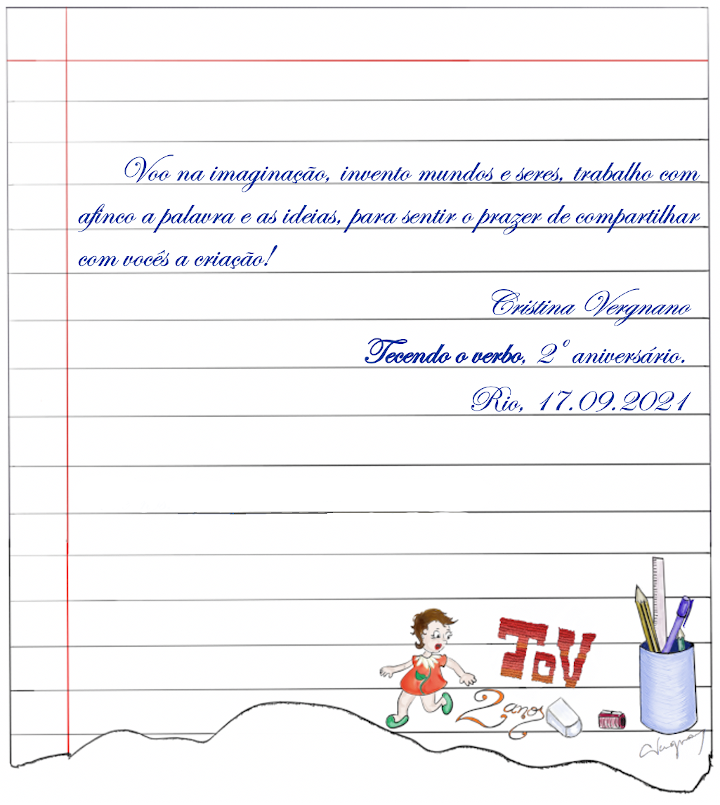 Voo na imaginação, invento mundos e seres, trabalho com
afinco a palavra e as ideias, para sentir o prazer de compartilhar
com vocês a criação!
Cristina Vergnano
Tecendo o verbo, 2º aniversário.
Rio, 17.09.2021
ToV
2 anos